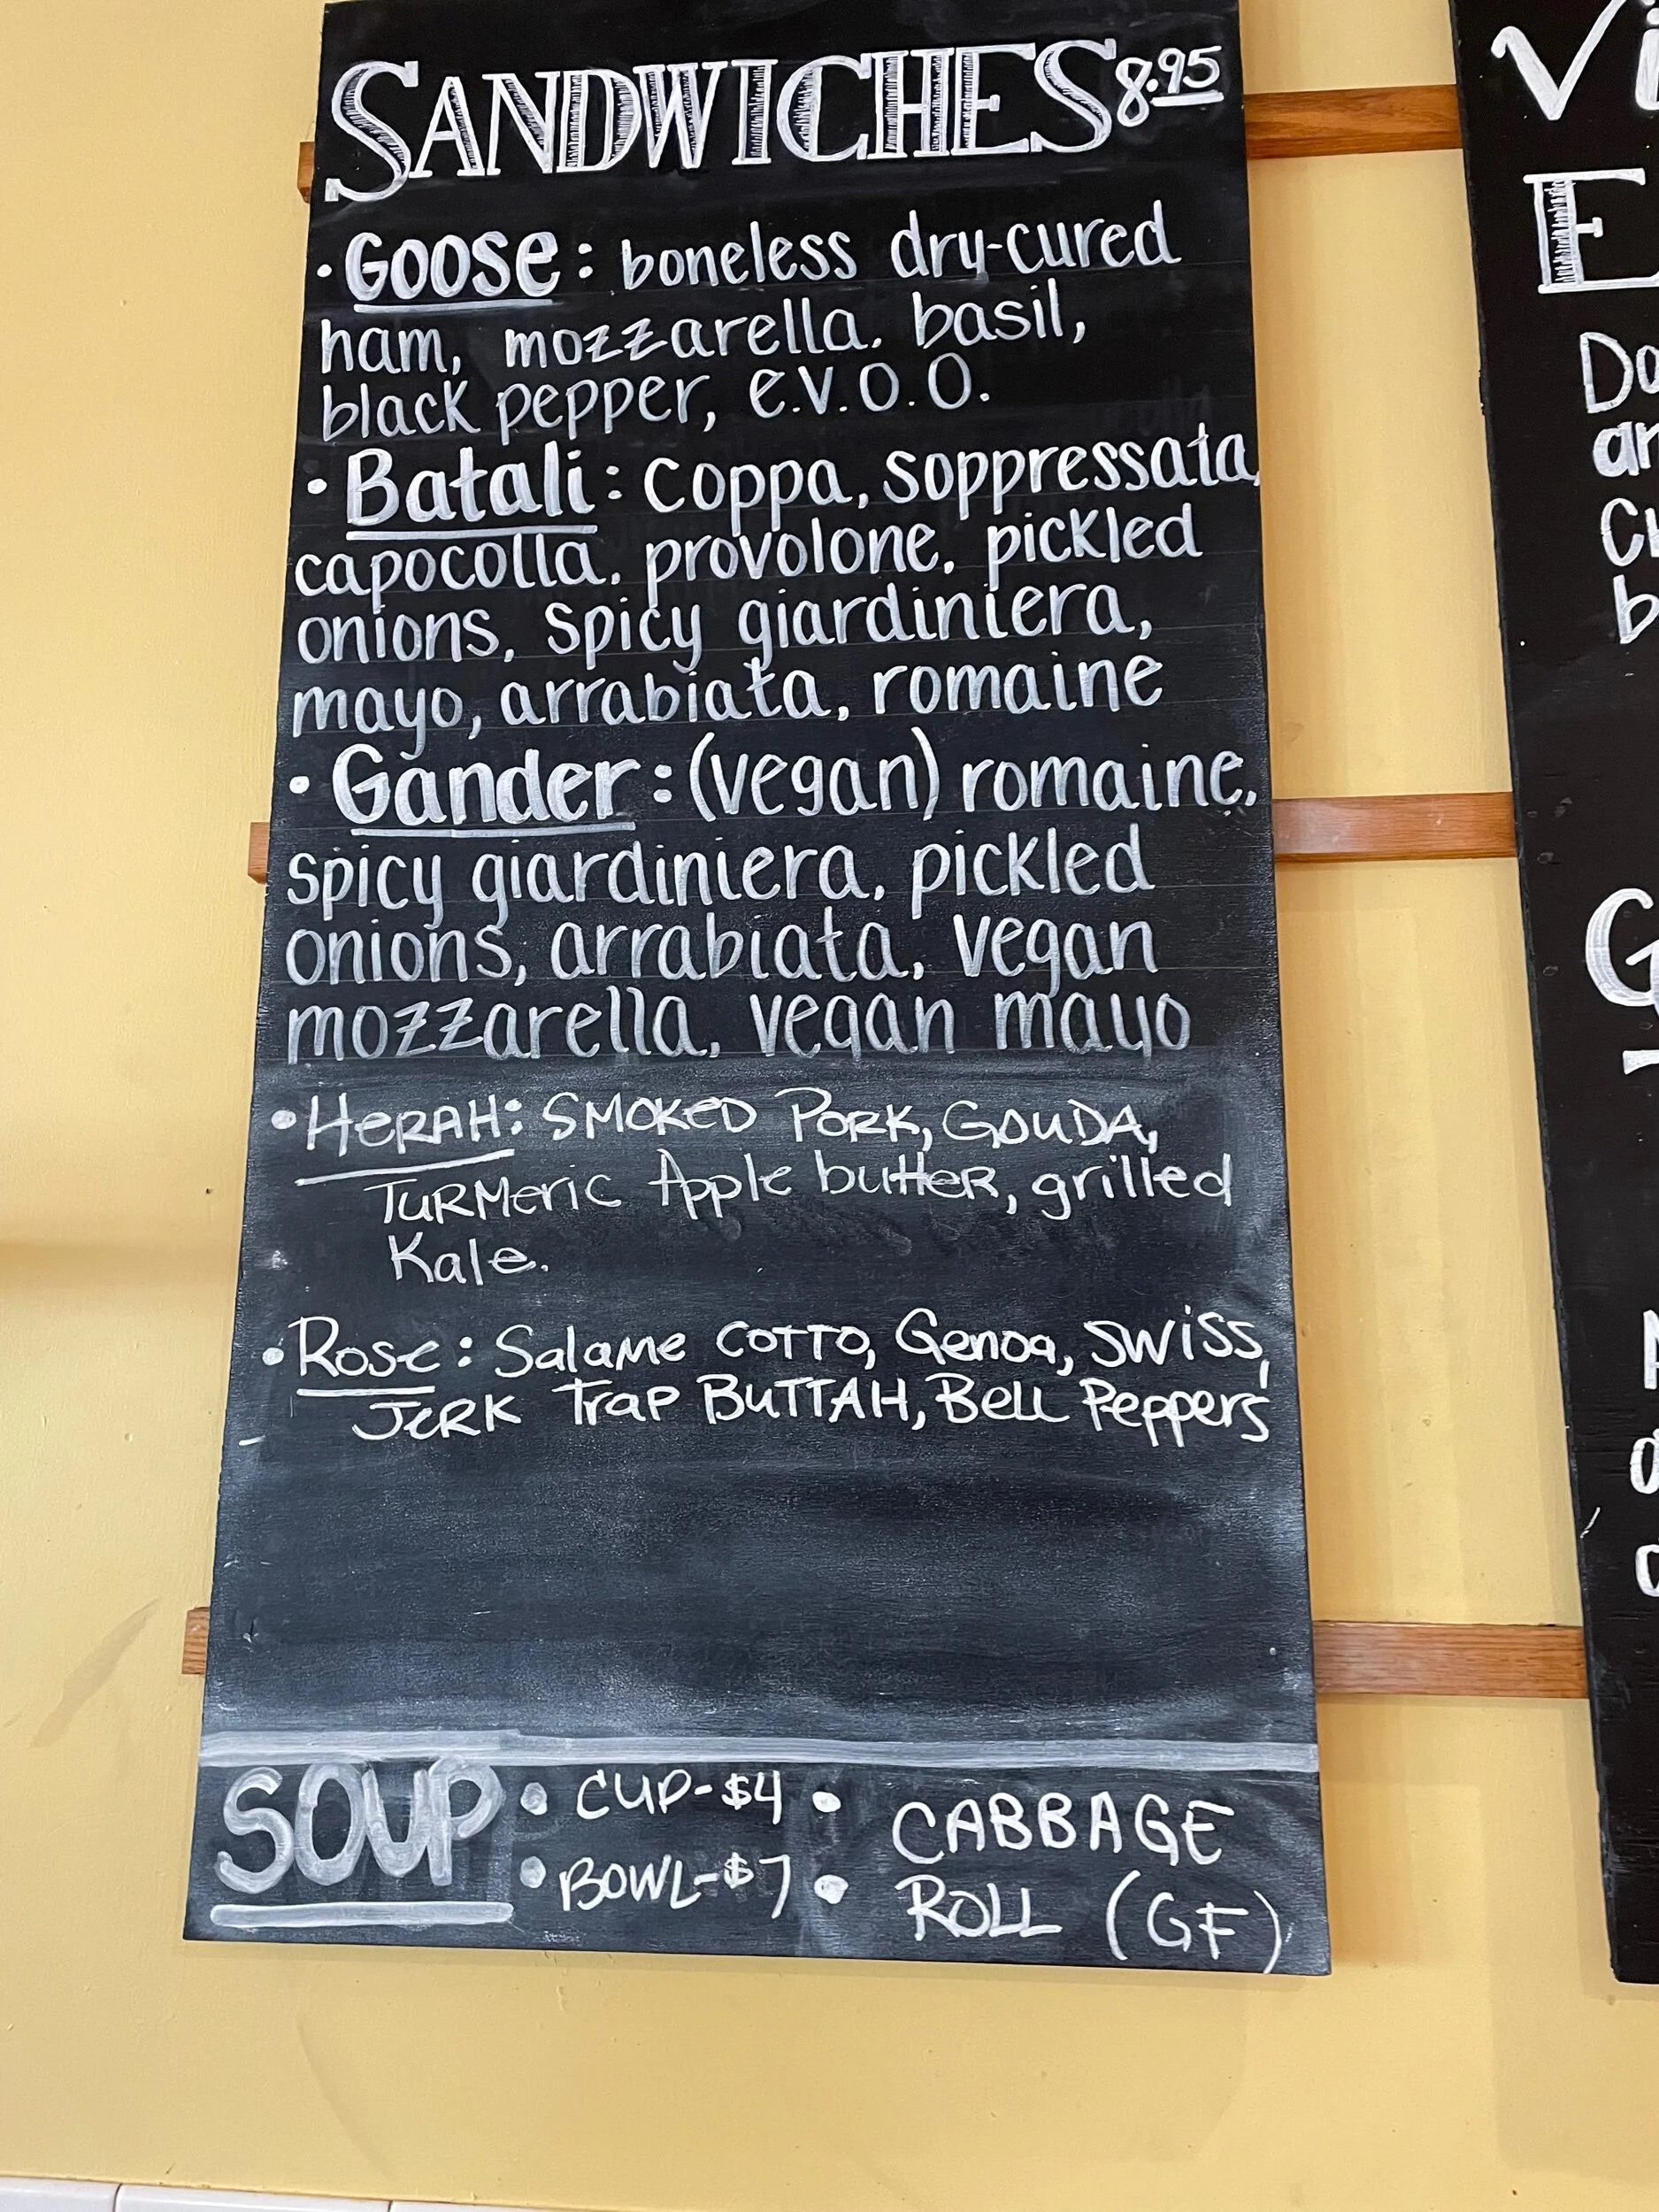 SANDWICHES 8.95
• Goose: boneless dry-cured
ham, mozzarella, basil,
black pepper, e.v.o.o.
• Batali: coppa, soppressata,
capocolla, provolone, pickled
onions, spicy giardiniera,
mayo, arrabiata, romaine
• Gander: (vegan) romaine,
spicy giardiniera, pickled
onions, arrabiata, vegan
mozzarella, vegan mayo
• HERAH: SMOKED PORK, GOUDA,
TURMERIC Apple butter, grilled
Kale.
• Rose: Salame COTTO, Genoa, SWISS,
JERK Trap BUTTAH, Bell Peppers
SOUP • CUP-$4 • CABBAGE
• BOWL-$7 • ROLL (GF)